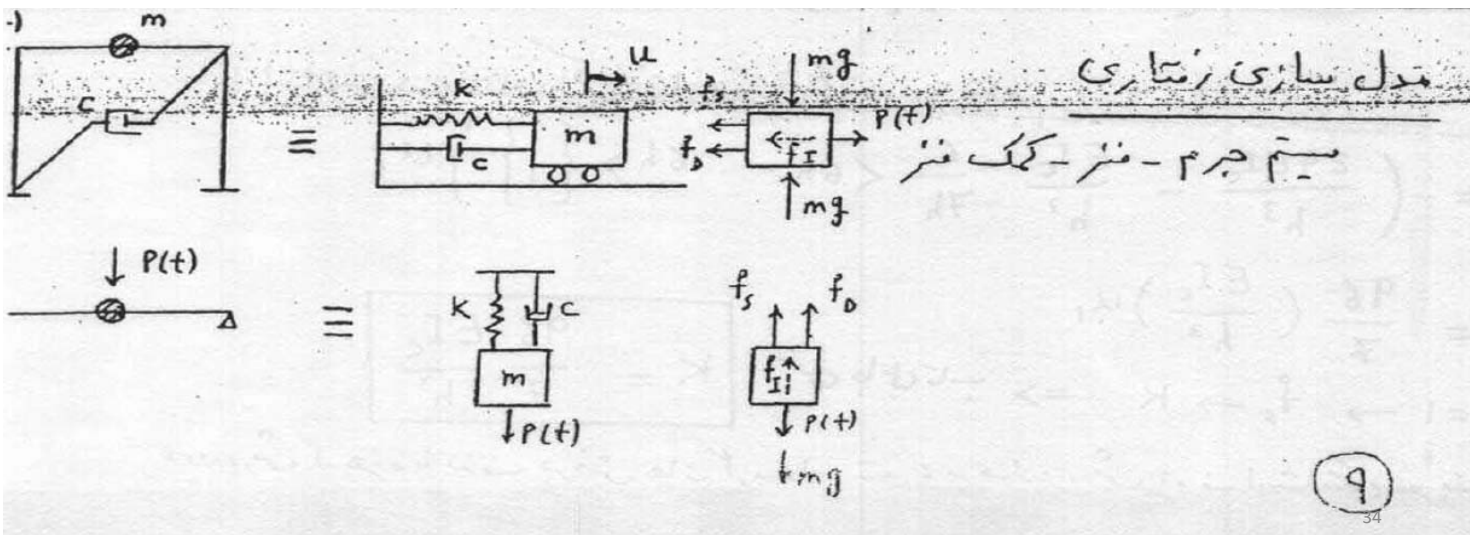 مدل سازی رفتاری
سیستم جرم - فنر - کمک فنر
m
c
≡
k
c
m
u
mg
f_s
f_D
f_I
P(t)
mg
P(t)
≡
k
c
m
P(t)
f_s
f_D
f_I
P(t)
mg
9
34